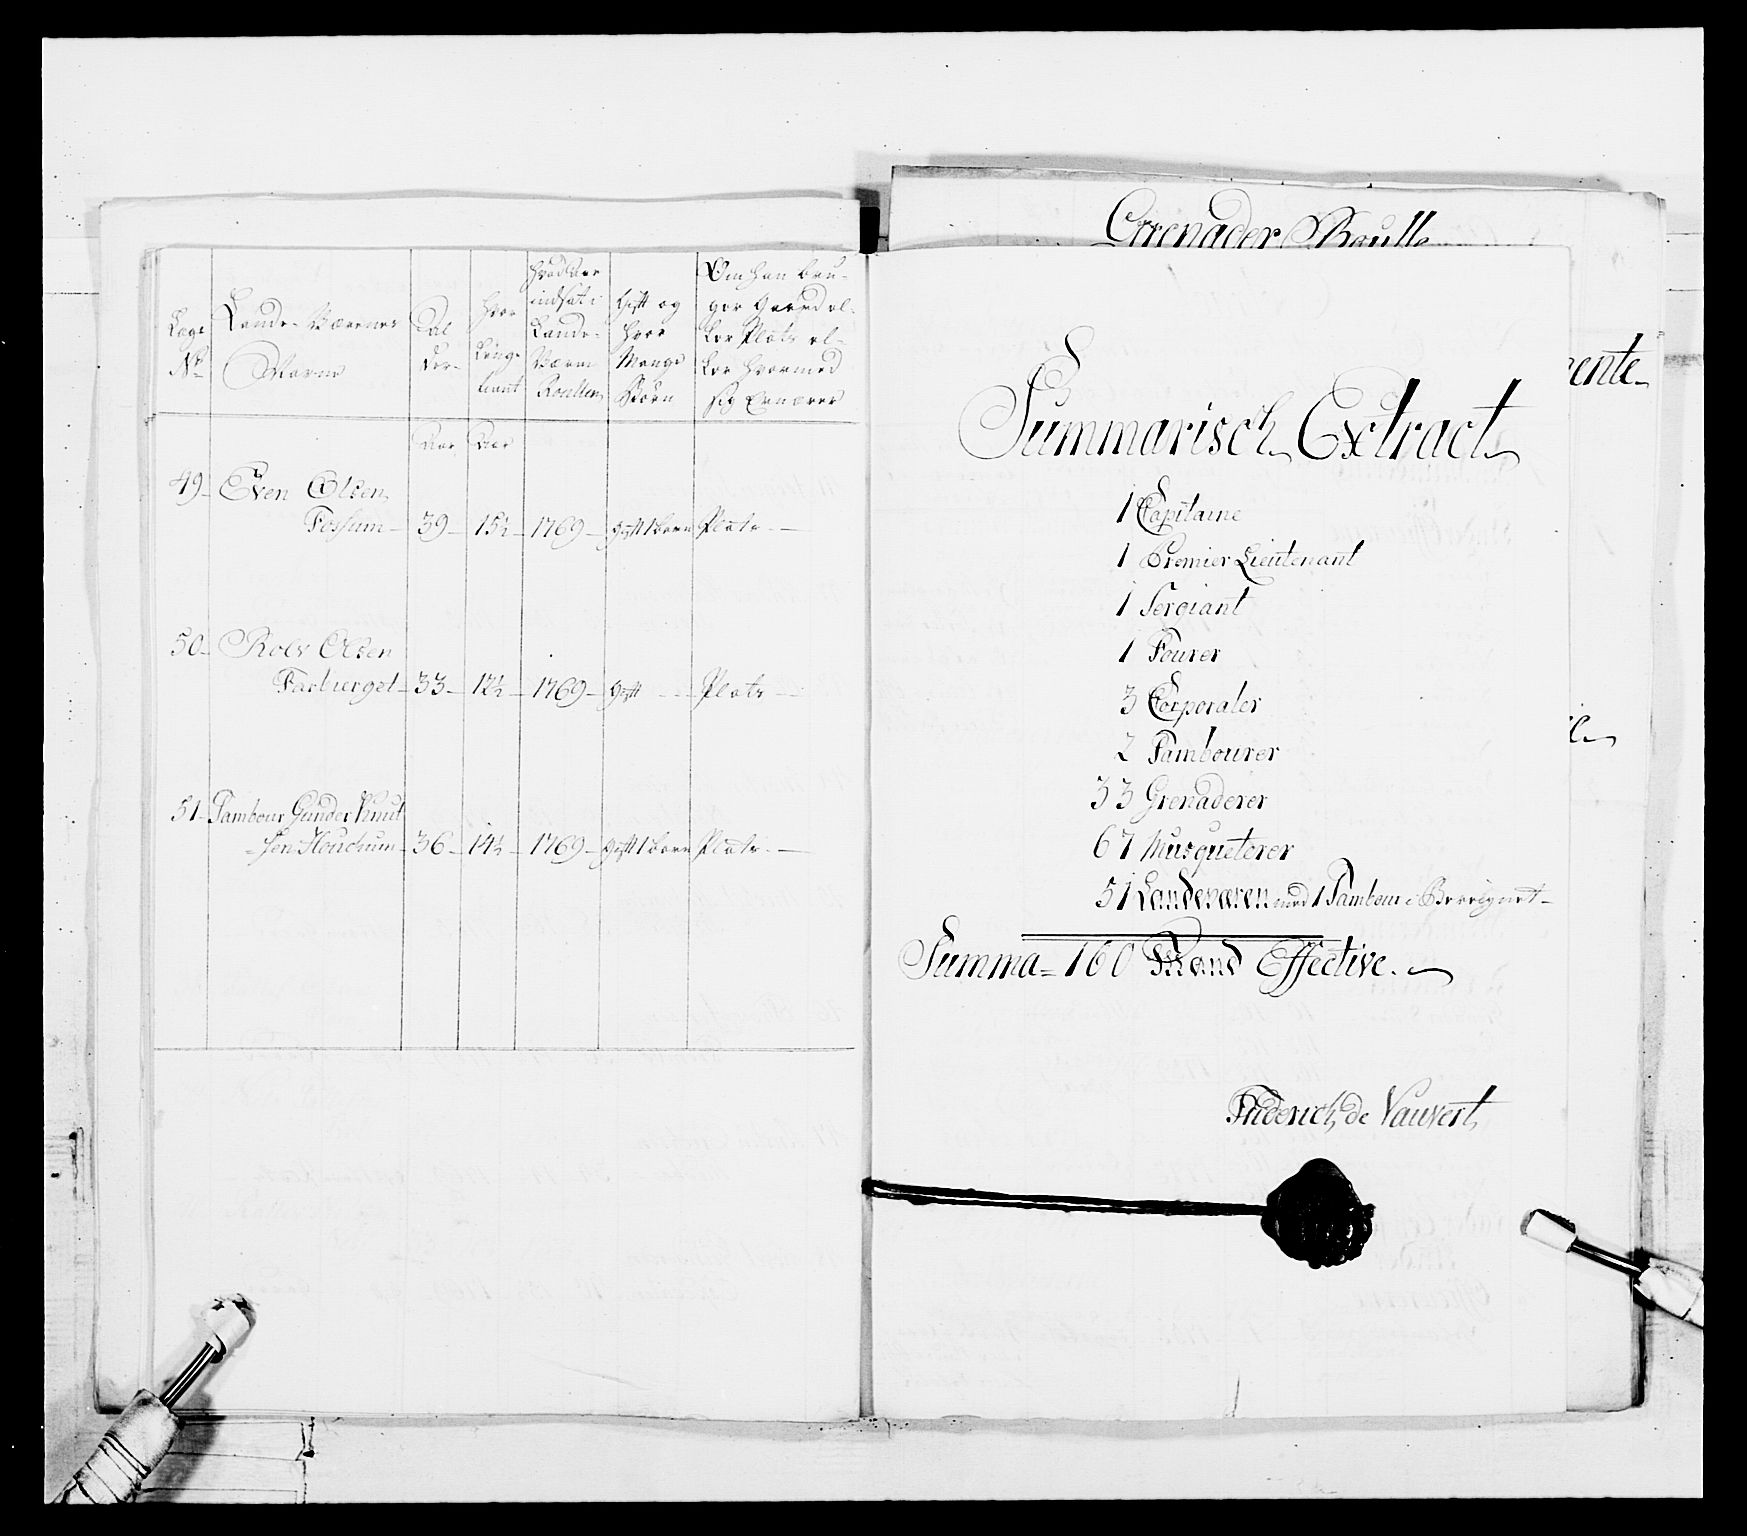 Lægs
No
Lande-Værnes
Navne
Al
der
Hvor
Længe
tient
Hvad Aar
indsat i
Lande-
Værns
Roullen
Gift og
hvor
Mange
Børn
Om han bru-
ger Gaard el-
ler Plads el-
ler hvormed
sig Ernærer
Aar Aar
49- Even Olsen
Fossum- 39- 15½- 1769- gift 1 barn Plads-
50- Rolv Olsen
Farberget- 33- 12½- 1769- gift - Plads-
51- Tambour Gunder Knut
-sen Houchum- 36- 14½- 1769- gift 1 barn Plads-
Grenader Roulle
ente
Summarisch Extract
1 Capitaine
1 Premier Lieutenant
1 Sergiant
1 Fourer
3 Corporaler
2 Tambourer
33 Grenaderer
67 Musqueterer
51 Landeværen med 1 Tambour i Bereignet-
Summa = 160 Mand Effective.
Friderich de Vauvert